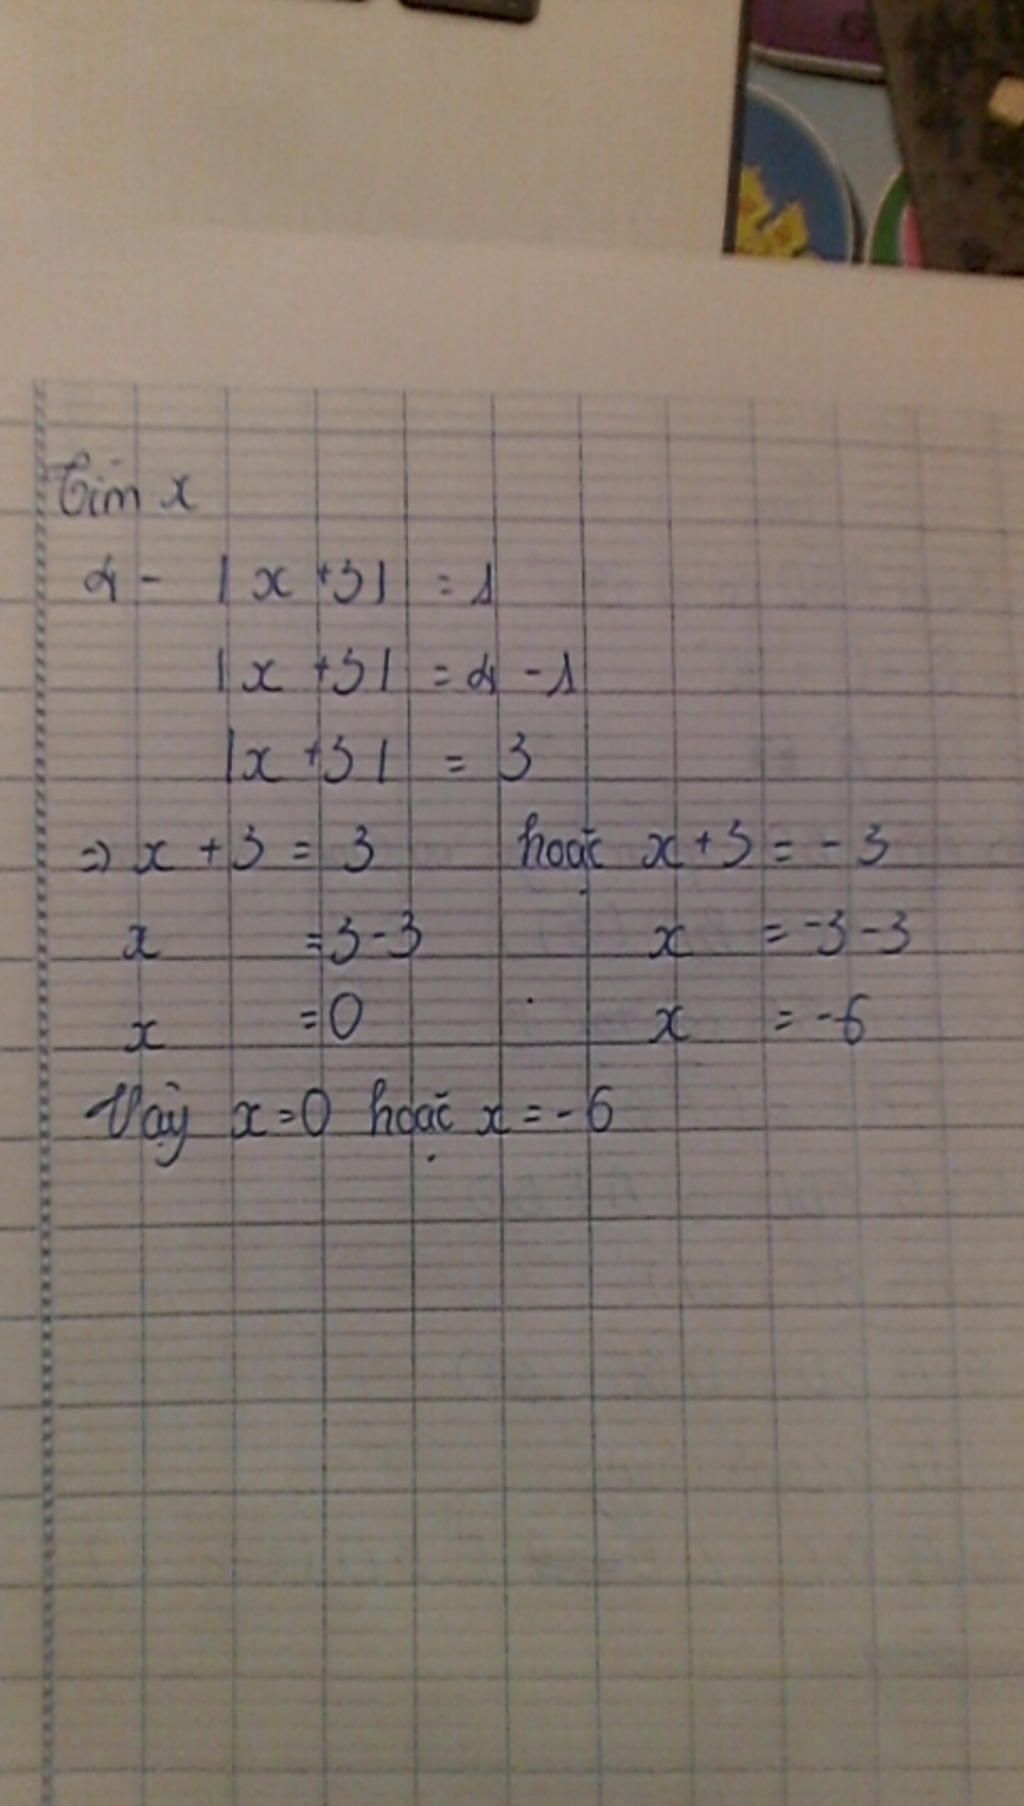 Tìm x
4 - |x +3| = 1
|x +3| = 4 - 1
|x +3| = 3
=> x + 3 = 3 hoặc x + 3 = - 3
x = 3 - 3 x = -3 - 3
x = 0 x = -6
Vậy x = 0 hoặc x = - 6